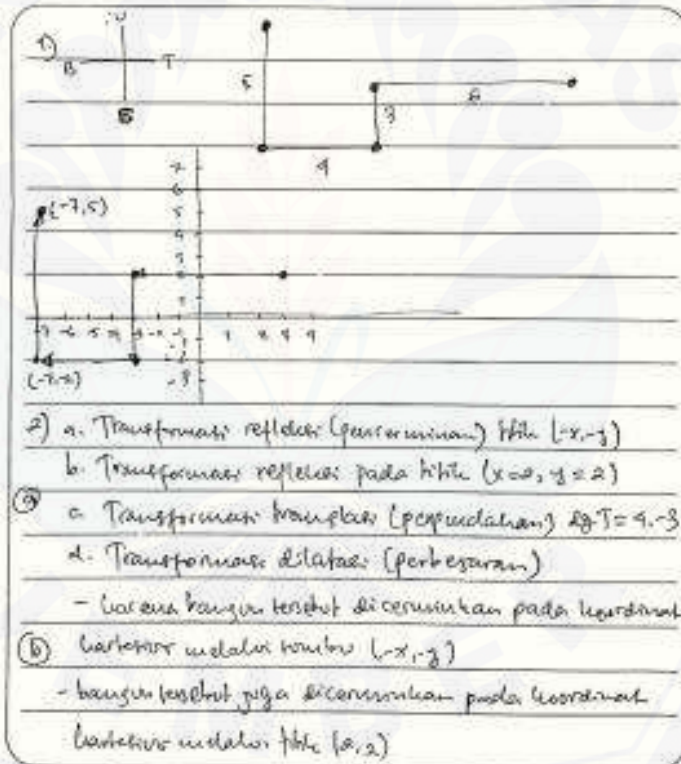 1)
U
B T
S
5
4
3
6
7
6
5
(-7,5)
-7 -6 -5 -4 -3 -2 -1 1 2 3 4
(-7,-2)
-3
2) a. Transformasi refleksi (pencerminan) titik (-x,-y)
b. Transformasi refleksi pada titik (x=2, y=2)
(a) c. Transformasi translasi (perpindahan) dg T=4.-3
d. Transformasi dilatasi (perbesaran)
- karena bangun tersebut dicerminkan pada koordinat
(b) kartesius melalui sumbu (-x,-y)
- bangun tersebut juga dicerminkan pada koordinat
kartesius melalui titik (2,2)